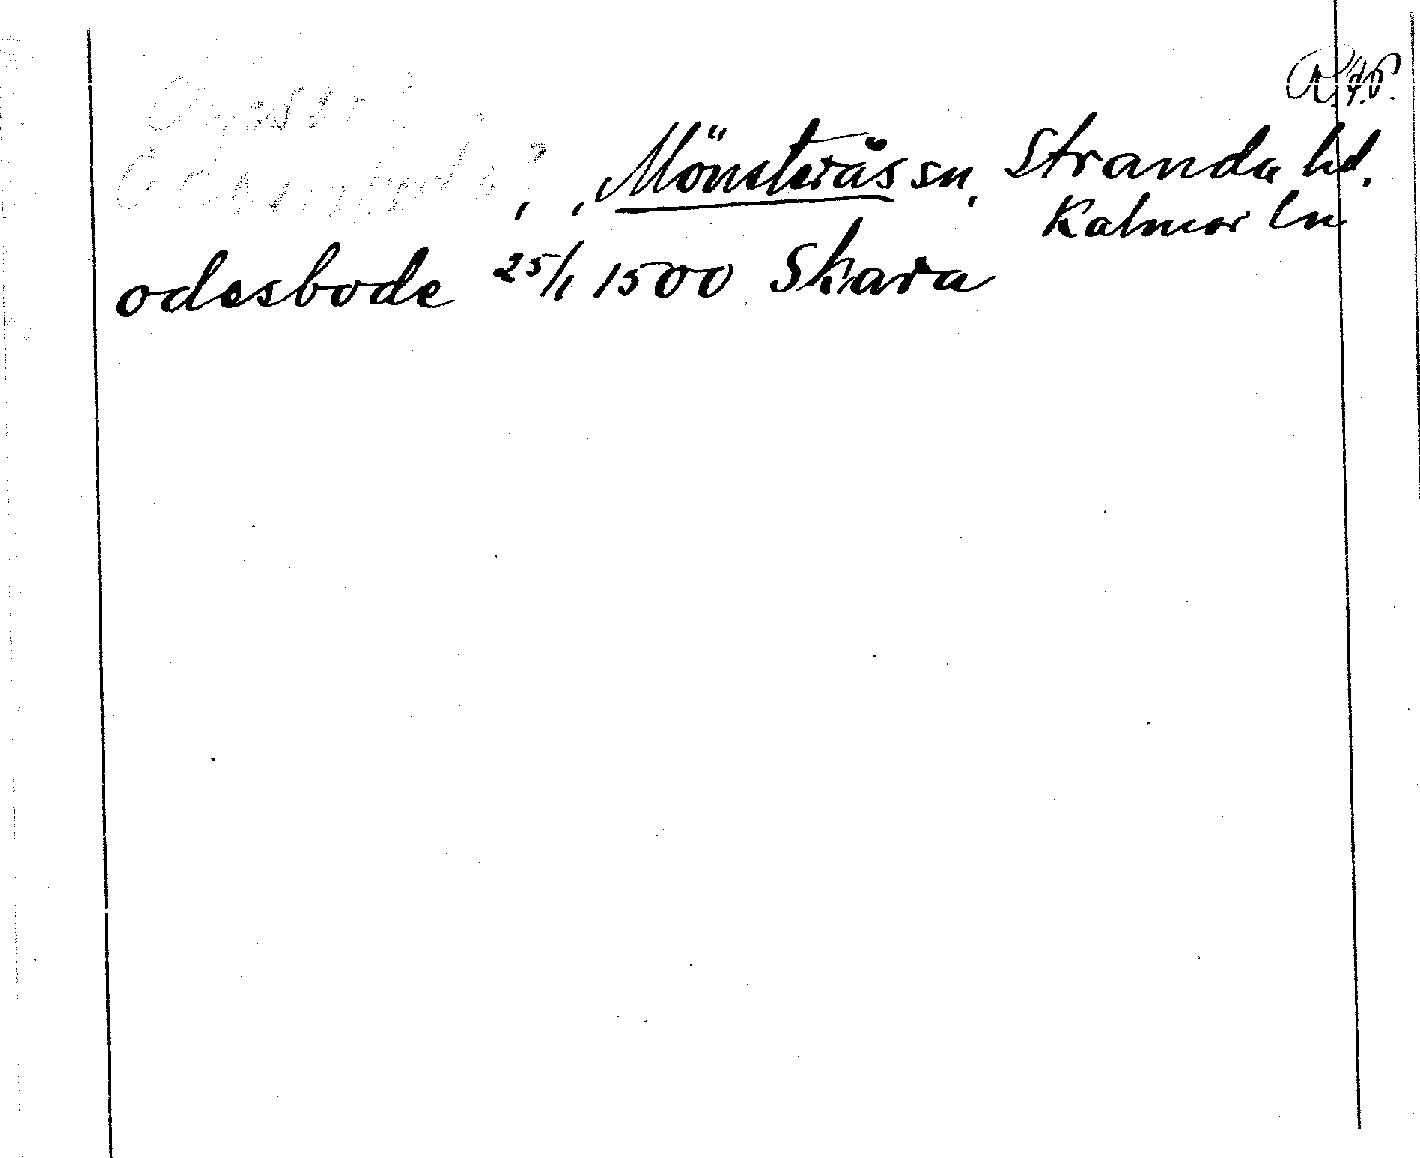 Mönsterås sn, Stranda hd.
Kalmar ln
odesbode 25/1 1500 Skara